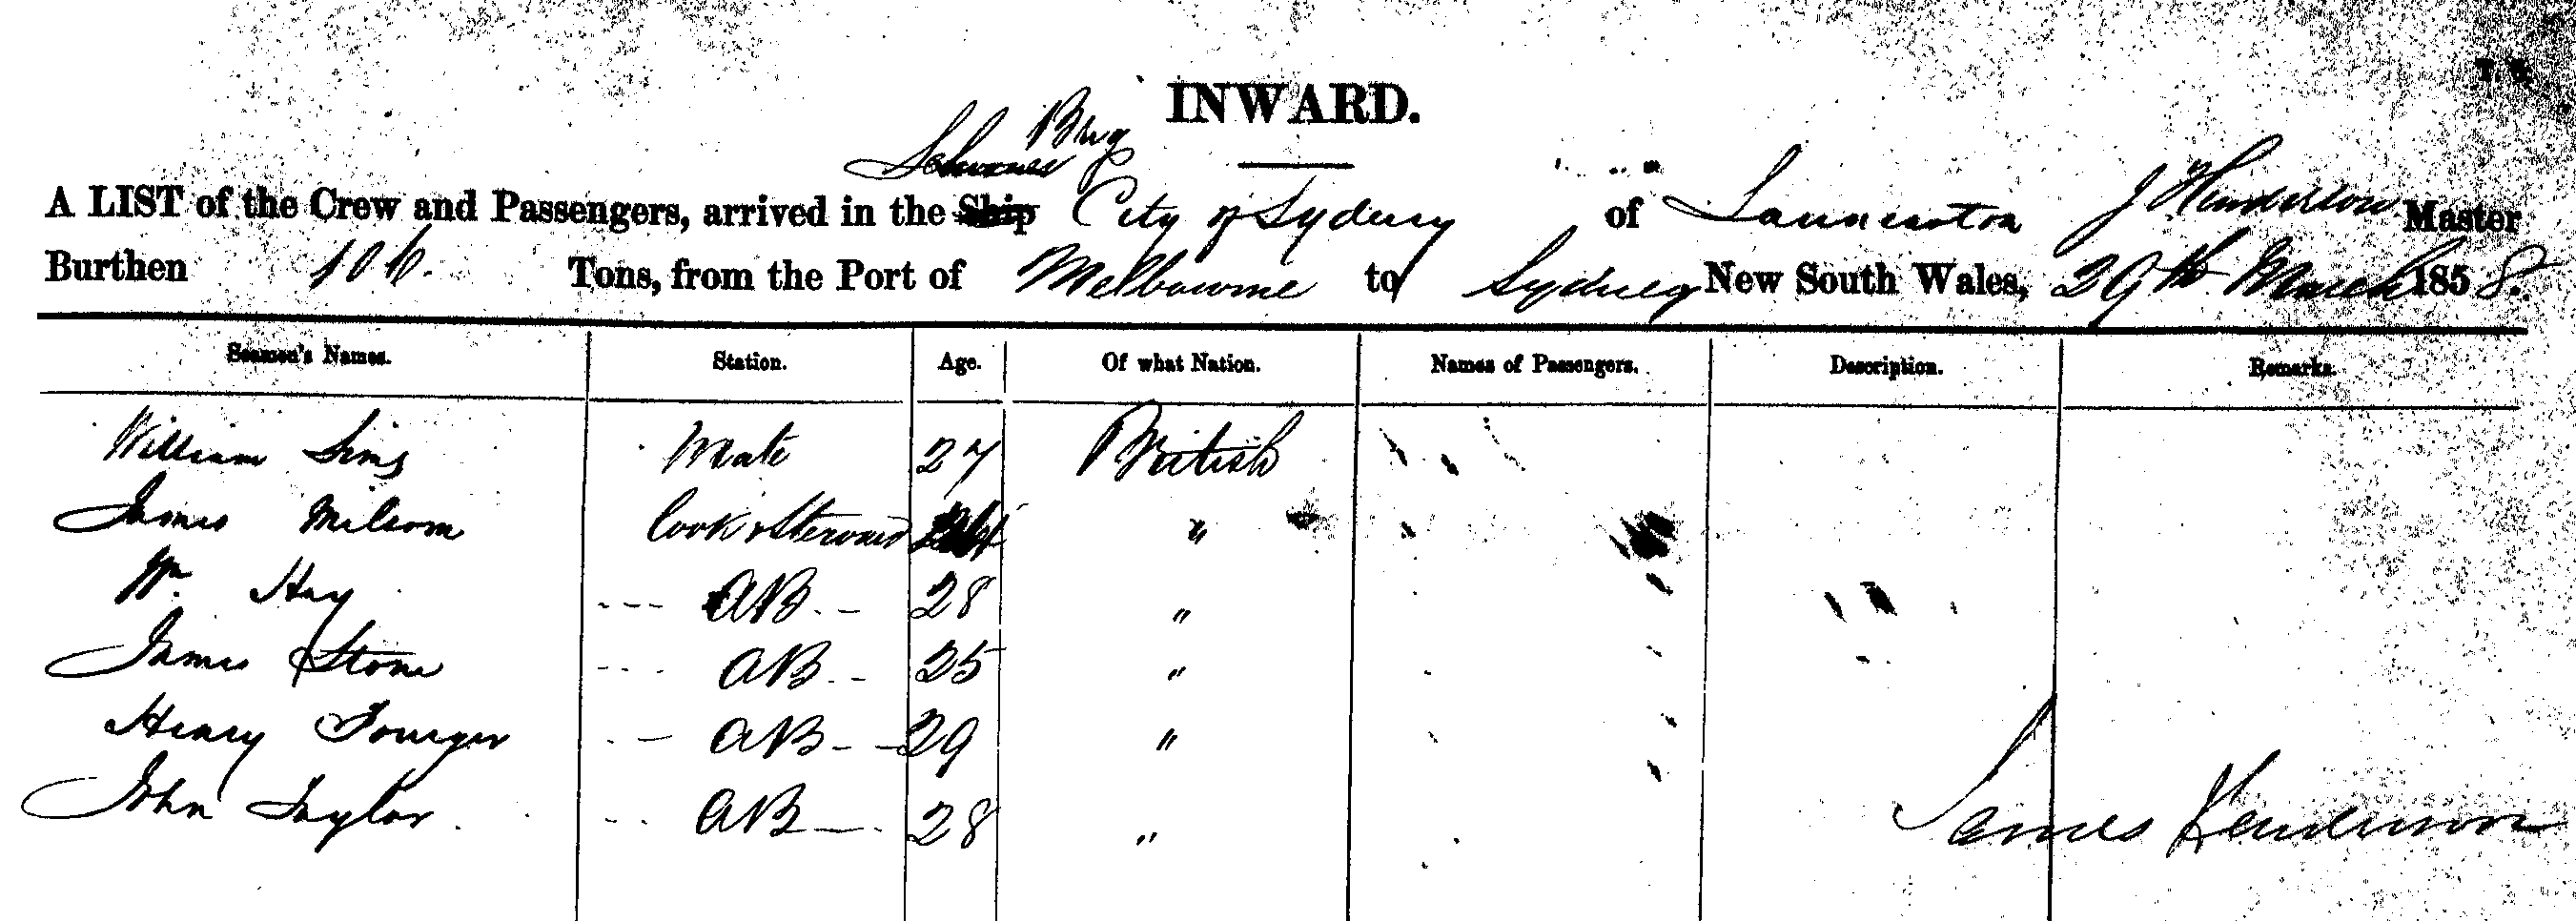 INWARD.
Brig
Schooner
A LIST of the Crew and Passengers, arrived in the Ship City of Sydney of Launceston J Henderson Master
Burthen 106. Tons, from the Port of Melbourne to Sydney New South Wales, 29th March 1858.
Seamen's Names. Station. Age. Of what Nation. Names of Passengers. Description. Remarks.
William Sims Mate 27 British
James Milsom Cook & Steward "
Wm. Hay --- AB -- 28 "
James Stone --- AB -- 25 "
Henry -- AB -- 29 "
John Taylor. -- AB -- 28 "
James Henderson